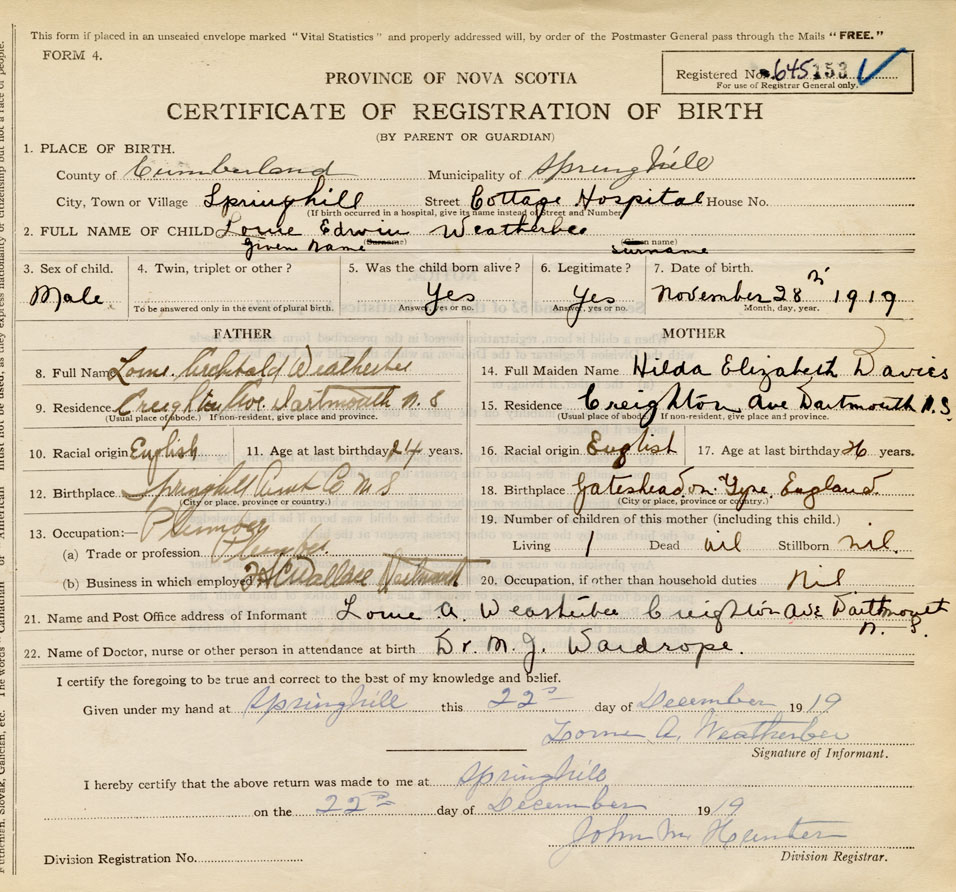 This form if placed in an unsealed envelope marked "Vital Statistics" and properly addressed will, by order of the Postmaster General pass through the Mails "FREE."
FORM 4.
Registered No. 645153
For use of Registrar General only.
PROVINCE OF NOVA SCOTIA
CERTIFICATE OF REGISTRATION OF BIRTH
(BY PARENT OR GUARDIAN)
1. PLACE OF BIRTH.
County of Cumberland Municipality of Springhill
City, Town or Village Springhill Street Cottage Hospital House No.
(If birth occurred in a hospital, give its name instead of Street and Number)
2. FULL NAME OF CHILD Lorne Edwin Weatherbee
Given Name (Surname) (Given name) surname
3. Sex of child. 4. Twin, triplet or other? 5. Was the child born alive? 6. Legitimate? 7. Date of birth.
Male. Yes Yes November 28 1919
To be answered only in the event of plural birth. Answer, yes or no. Answer, yes or no. Month, day, year.
FATHER MOTHER
8. Full Name Lorne Archibald Weatherbee 14. Full Maiden Name Hilda Elizabeth Davies
9. Residence Creighton Ave. Dartmouth N.S 15. Residence Creighton Ave Dartmouth N.S.
(Usual place of abode.) If non-resident, give place and province. (Usual place of abode.) If non-resident, give place and province.
10. Racial origin English 11. Age at last birthday 24 years. 16. Racial origin English 17. Age at last birthday years.
12. Birthplace Springhill Co N S 18. Birthplace Gateshead on Tyne, England
(City or place, province or country.) (City or place, province or country.)
13. Occupation:— Plumber 19. Number of children of this mother (including this child.)
(a) Trade or profession Plumber Living 1 Dead nil Stillborn nil.
(b) Business in which employed Wallace Dartmouth 20. Occupation, if other than household duties Nil
21. Name and Post Office address of Informant Lorne A. Weatherbee Creighton Ave Dartmouth N. S.
22. Name of Doctor, nurse or other person in attendance at birth Dr. M. J. Wardrope.
I certify the foregoing to be true and correct to the best of my knowledge and belief.
Given under my hand at Springhill this 22nd day of December 1919
Lorne A. Weatherbee
Signature of Informant.
I hereby certify that the above return was made to me at Springhill
on the 22nd day of December 1919
John M. Hunter
Division Registration No. Division Registrar.